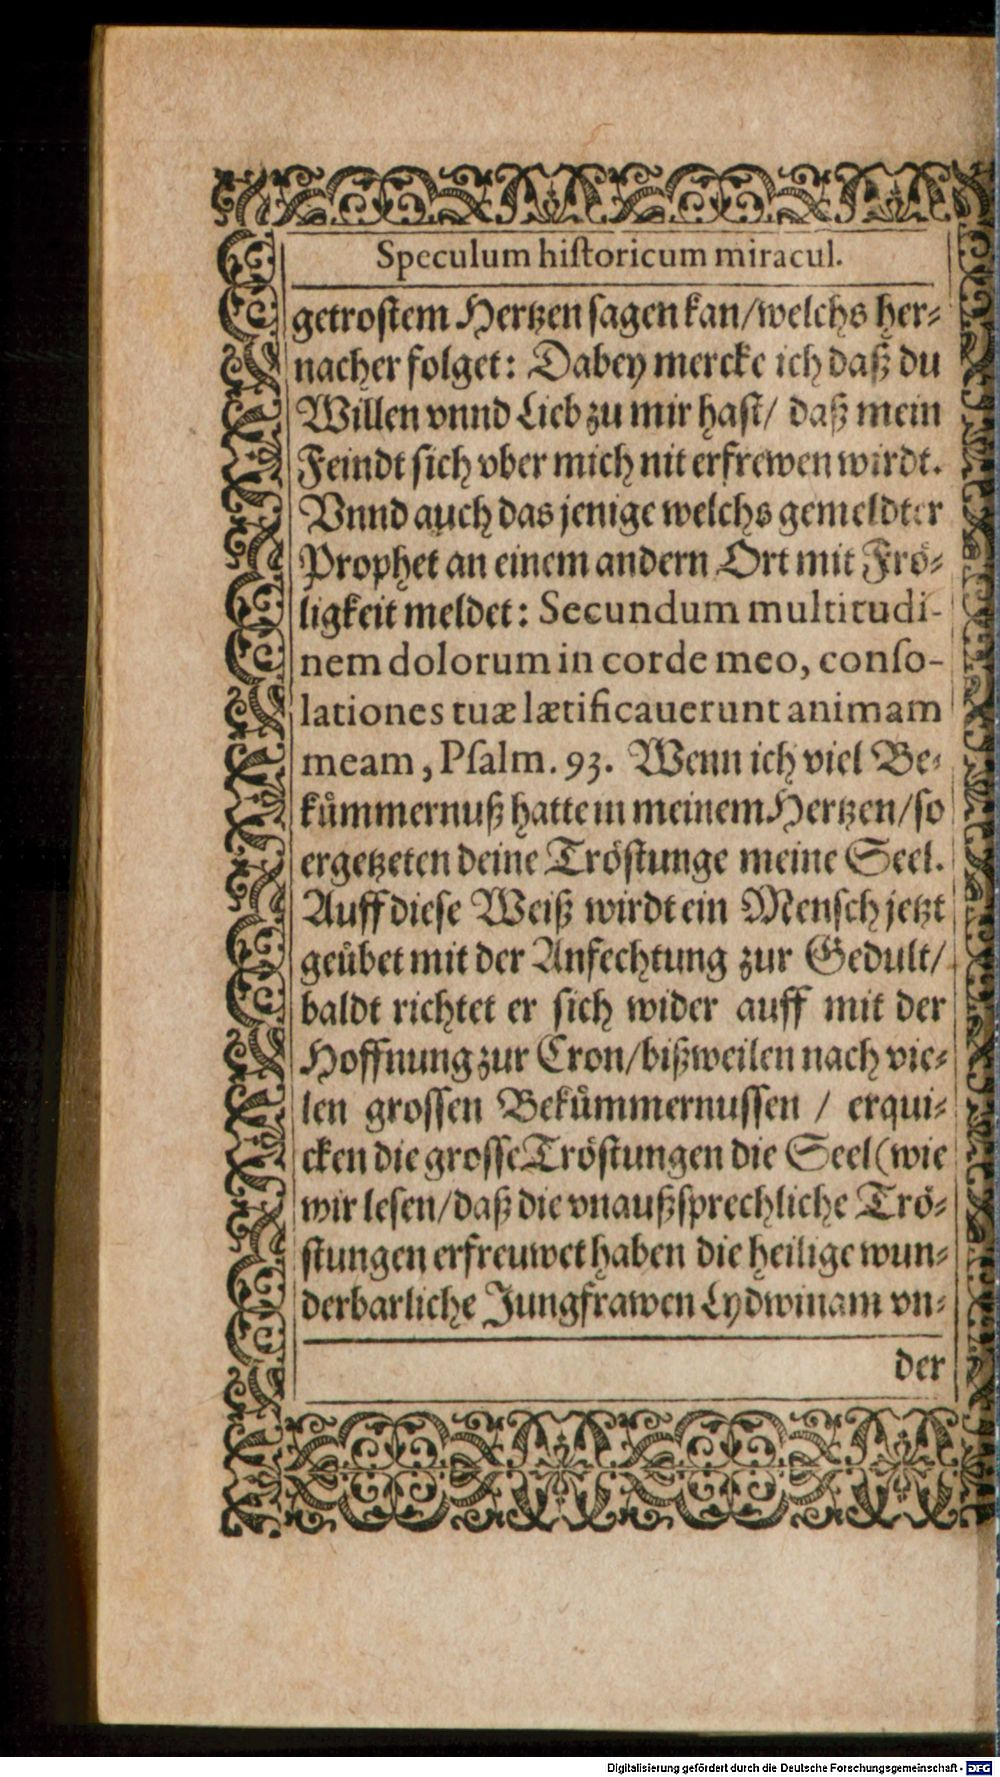 Speculum hiſtoricum miracul.
getroſtem Hertzen ſagen kan/welchs her-
nacher folget: Dabey mercke ich daß du
Willen vnnd Lieb zu mir haſt/ daß mein
Feindt ſich vber mich nit erfrewen wirdt.
Vnnd auch das jenige welchs gemeldter
Prophet an einem andern Ort mit Frö-
ligkeit meldet: Secundum multitudi-
nem dolorum in corde meo, conſo-
lationes tuæ lætificauerunt animam
meam, Pſalm. 93. Wenn ich viel Be-
kuͤmmernuß hatte in meinem Hertzen/ſo
ergetzeten deine Tröſtunge meine Seel.
Auff dieſe Weiß wirdt ein Menſch jetzt
geuͤbet mit der Anfechtung zur Gedult/
baldt richtet er ſich wider auff mit der
Hoffnung zur Cron/bißweilen nach vie-
len groſſen Bekuͤmmernuſſen / erqui-
cken die groſſe Tröſtungen die Seel (wie
wir leſen/daß die vnaußſprechliche Trö-
ſtungen erfreuwet haben die heilige wun-
derbarliche Jungfrawen Lydwinam vn-
der
Digitalisierung gefördert durch die Deutsche Forschungsgemeinschaft - DFG